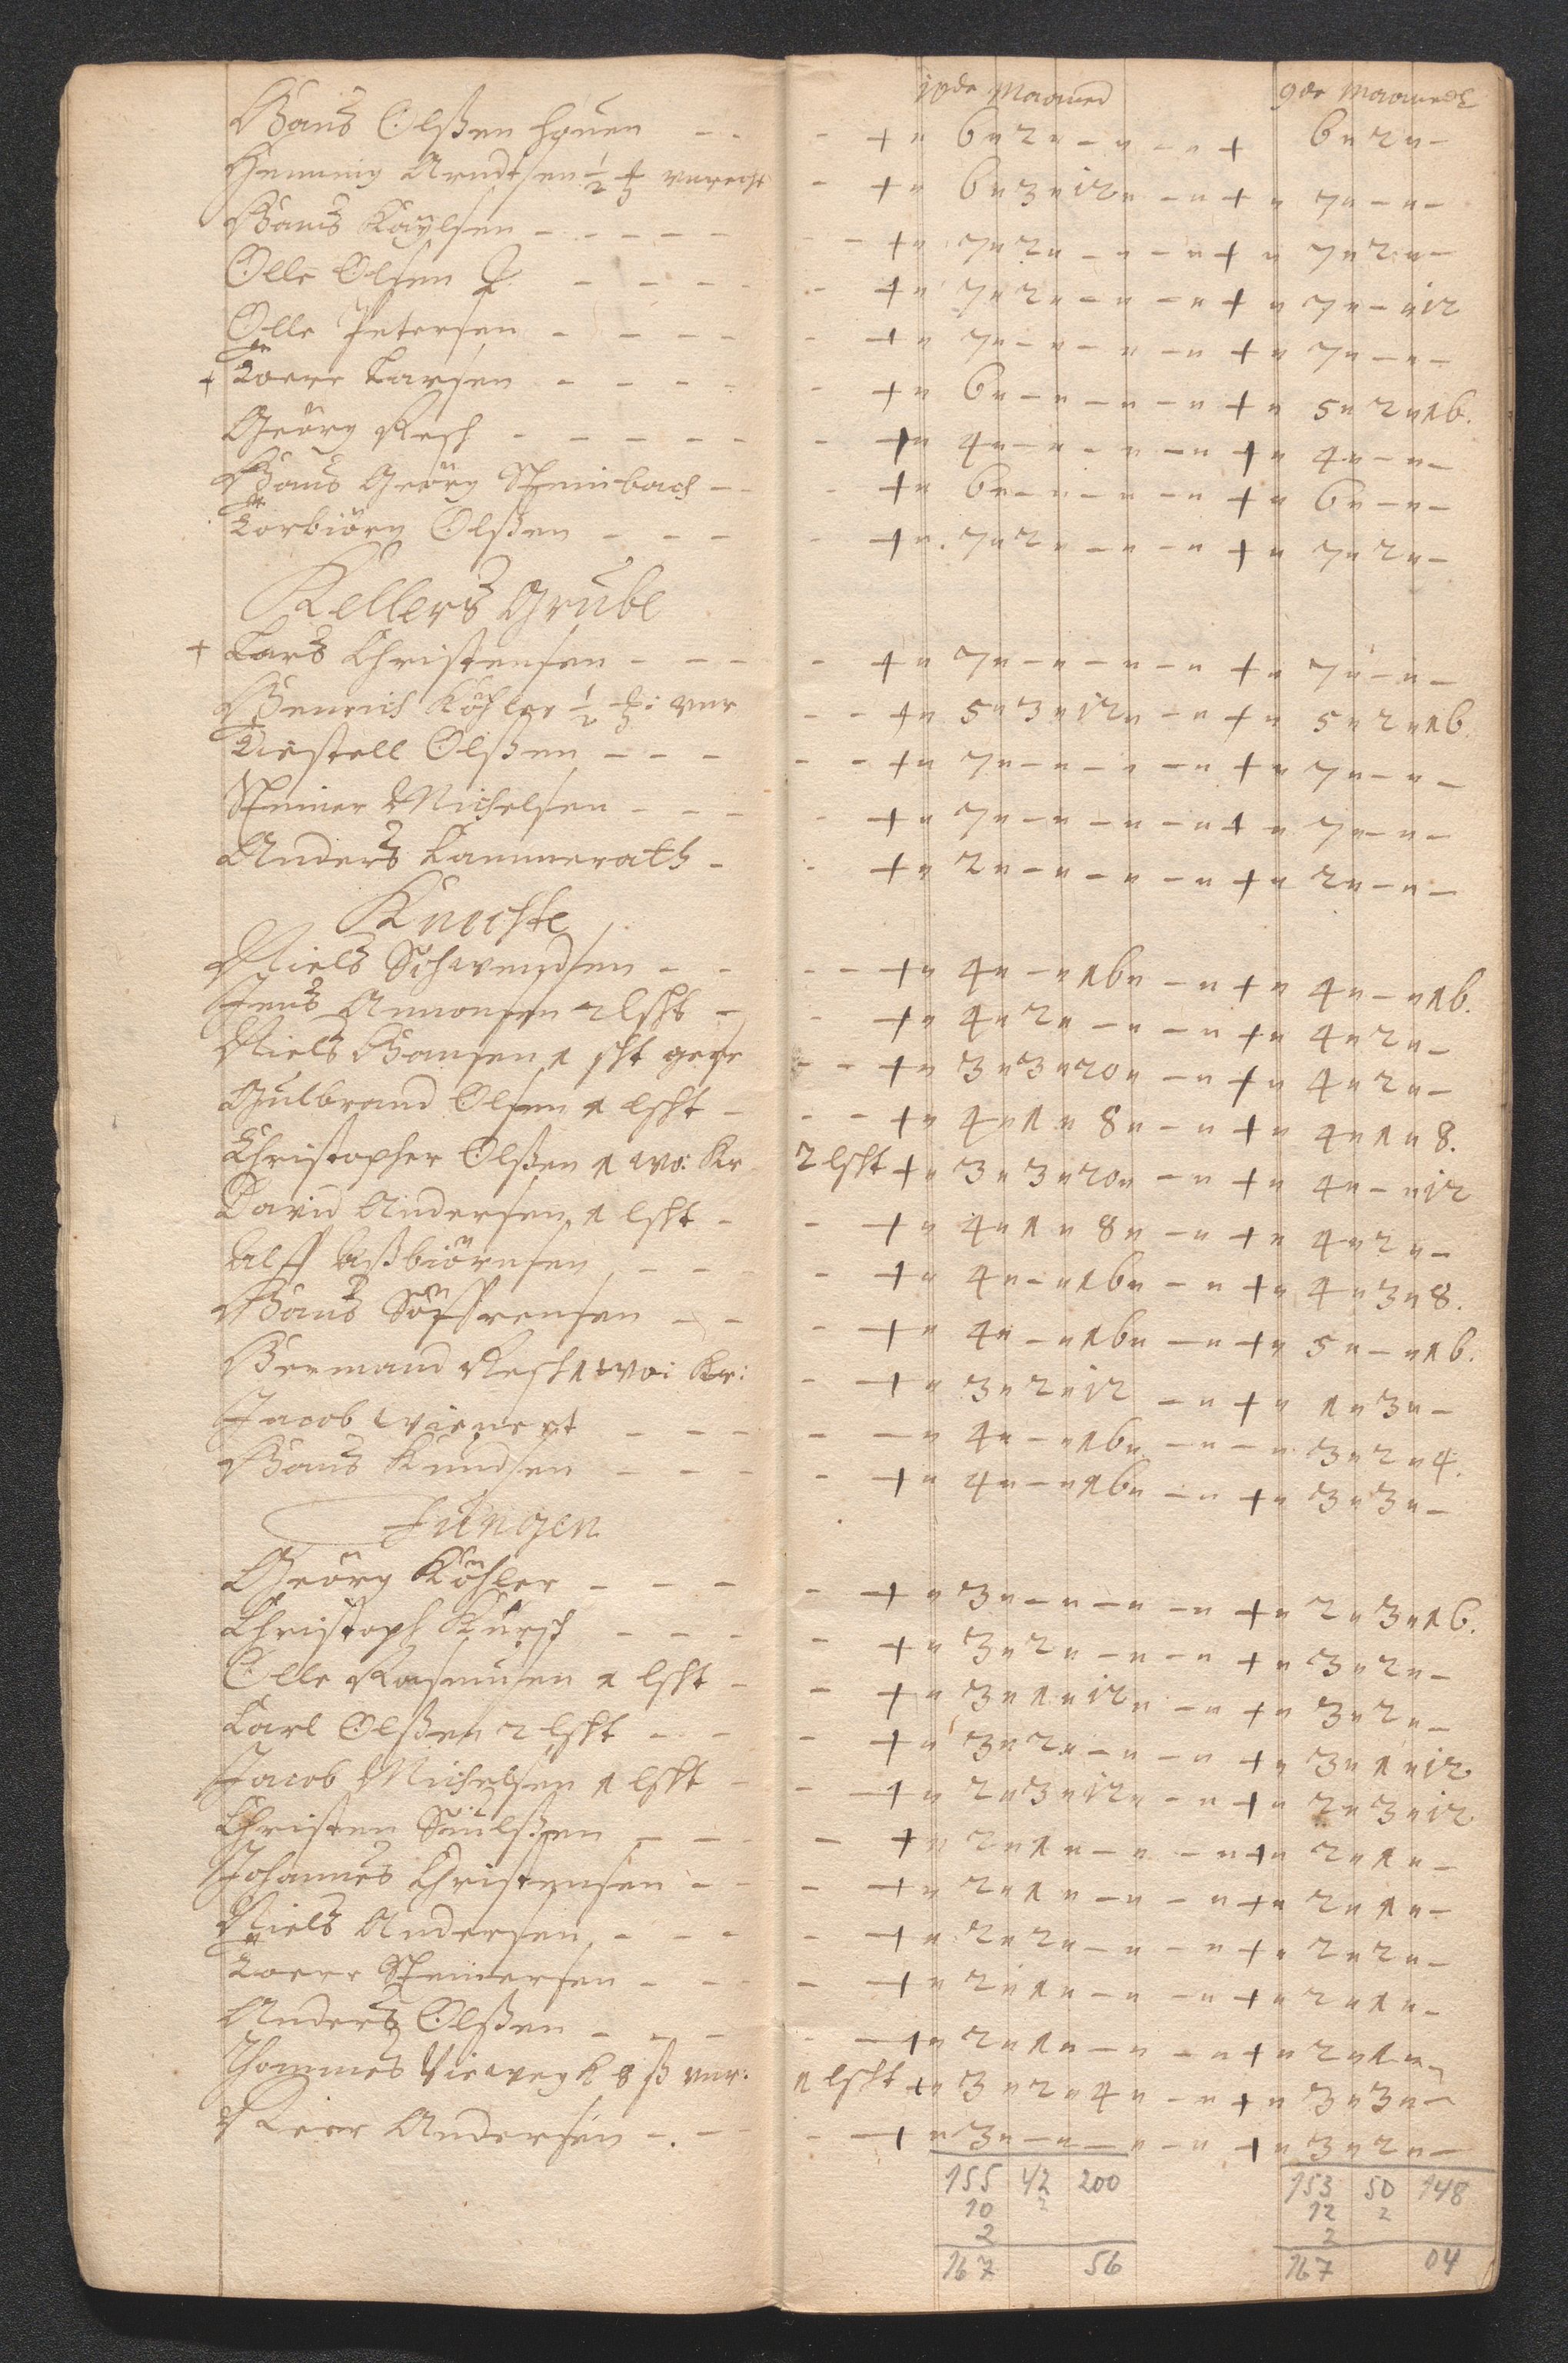 10de Maaned 9de Maaned
Hans Olßen houen - - - + " 6 " 2 " - " - " + 6 " 2 " -
Henning Arndtsen ½ verecht - + " 6 " 3 " 12 " - " + " 7 " - " -
Hans Kaÿlsen - - - - - - + " 7 " 2 " - " - " + " 7 " 2 " -
Olle Olsen - - - - + " 7 " 2 " - " - " + " 7 " - " 12
Olle Petersen - - - - - + " 7 " - " - " - " + " 7 " - " -
+ Toere Larsen - - - - - + " 6 " - " - " - " + " 5 " 2 " 16.
Geörg Resch - - - - - - + " 4 " - " - " - " + " 4 " - " -
Hans Geörg Steinbach - - + " 6 " - " - " - " + " 6 " - " -
Torbiörn Olßen - - - - + " 7 " 2 " - " - " + " 7 " 2 " -
Kellers Grube
+ Lars Christensen - - - - + " 7 " - " - " - " + " 7 " - " -
Henrich Köhler ½ : ver - - + " 5 " 3 " 12 " - " + " 5 " 2 " 16.
Kiestell Olßen - - - - - + " 7 " - " - " - " + " 7 " - " -
Steiner Michelsen - - - - + " 7 " - " - " - " + " 7 " - " -
Anders Cammerath - - + " 2 " - " - " - " + " 2 " - " -
Knechte
Niels Schwendsen - - - - + " 4 " - " 16 " - " + " 4 " - " 16.
Jens Amonsen 2 lsht - - + " 4 " 2 " - " - " + " 4 " 2 " -
Niels Hansen 1 sht - - + " 3 " 3 " 20 " - " + " 4 " 2 " -
Gulbrand Olsen 1 lsht - - - + " 4 " 1 " 8 " - " + " 4 " 1 " 8.
Christopher Olßen 1 wo: Kr 2 lsht + " 3 " 3 " 20 " - " + " 4 " - " 12
David Andersen 1 lsht - - + " 4 " 1 " 8 " - " + " 4 " 2 " -
Alff Aßbiörnsen - - - - + " 4 " - " 16 " - " + " 4 " 3 " 8.
Hans Söffrensen - - - + " 4 " - " 16 " - " + " 5 " - " 16.
Hermand Resch 1 wo: Kr: - + " 3 " 2 " 12 - " + " 1 " 3 " -
Jacob Wienert - - - - - " 4 " - " 16 " - " - " 3 " 2 " 4.
Hans Knudsen - - - - + " 4 " - " 16 " - " + " 3 " 3 " -
Jungen
Geörg Köhler - - - - + " 3 " - " - " - " + " 2 " 3 " 16.
Christoph Kursch - - - - + " 3 " 2 " - " - " + " 3 " 2 " -
Olle Rasmusen 1 lsht - - + " 3 " 1 " 12 " - " + " 3 " 2 " -
Carl Olßen 2 lsht - - - + " 3 " 2 " - " - " + " 3 " 1 " 12
Jacob Michelsen 1 lsht - - + " 2 " 3 " 12 " - " + " 2 " 3 " 12
Christen Siulßen - - - + " 2 " 1 " - " - " + " 2 " 1 " -
Johannes Christensen - - - + " 2 " 1 " - " - " + " 2 " 1 " -
Niels Andersen - - - - + " 2 " 2 " - " - " + " 2 " 2 " -
Toere Steinersen - - - + " 2 " 1 " - " - " + " 2 " 1 " -
Anders Olßen - - - - + " 2 " 1 " - " - " + " 2 " 1 " -
Thommes Vieweg 8 ß ver: 1 lsht + " 3 " 2 " 4 " - " + " 3 " 3 " -
Peer Andersen - - - + " 3 " - " - " - " + " 3 " 2 " -
155 42 200 153 50 148
10 2 12 2
2 2
167 56 167 04